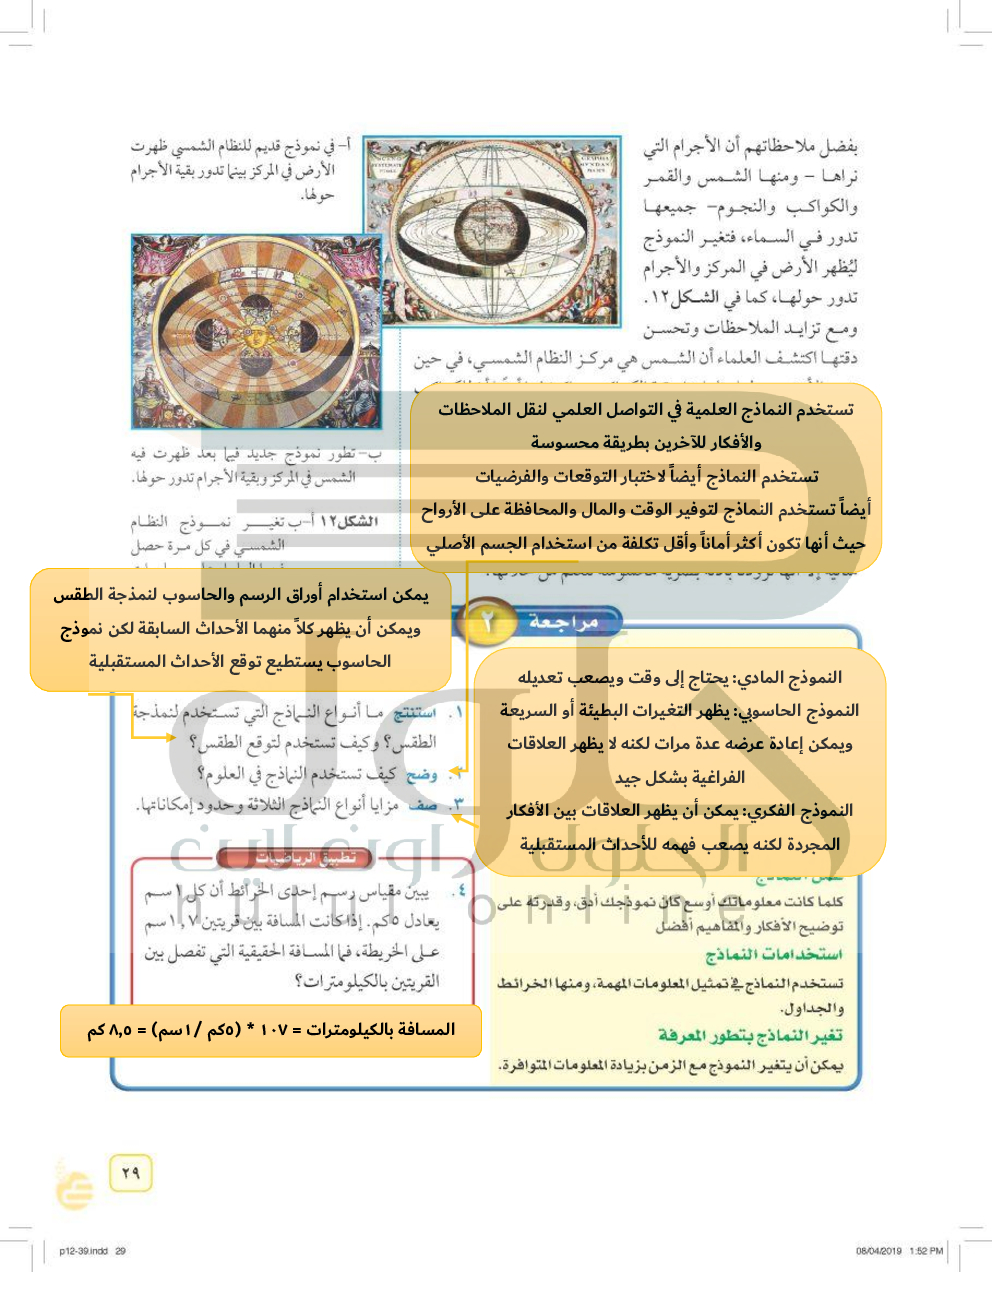 بفضل ملاحظاتهم أن الأجرام التي
نراها – ومنها الشمس والقمر
والكواكب والنجوم– جميعها
تدور في السماء، فتغير النموذج
ليُظهر الأرض في المركز والأجرام
تدور حولها، كما في الشكل١٢.
ومع تزايد الملاحظات وتحسن
دقتها اكتشف العلماء أن الشمس هي مركز النظام الشمسي، في حين
أ– في نموذج قديم للنظام الشمسي ظهرت
الأرض في المركز بينما تدور بقية الأجرام
حولها.
ب– تطور نموذج جديد فيما بعد ظهرت فيه
الشمس في المركز وبقية الأجرام تدور حولها.
الشكل١٢ أ–ب تغير نموذج النظام
الشمسي في كل مرة حصل
تستخدم النماذج العلمية في التواصل العلمي لنقل الملاحظات
والأفكار للآخرين بطريقة محسوسة
تستخدم النماذج أيضاً لاختبار التوقعات والفرضيات
أيضاً تستخدم النماذج لتوفير الوقت والمال والمحافظة على الأرواح
حيث أنها تكون أكثر أماناً وأقل تكلفة من استخدام الجسم الأصلي
يمكن استخدام أوراق الرسم والحاسوب لنمذجة الطقس
ويمكن أن يظهر كلاً منهما الأحداث السابقة لكن نموذج
الحاسوب يستطيع توقع الأحداث المستقبلية
مراجعة ٢
النموذج المادي: يحتاج إلى وقت ويصعب تعديله
النموذج الحاسوبي: يظهر التغيرات البطيئة أو السريعة
ويمكن إعادة عرضه عدة مرات لكنه لا يظهر العلاقات
الفراغية بشكل جيد
النموذج الفكري: يمكن أن يظهر العلاقات بين الأفكار
المجردة لكنه يصعب فهمه للأحداث المستقبلية
كلما كانت معلوماتك أوسع كان نموذجك أدق، وقدرته على
توضيح الأفكار والمفاهيم أفضل
استخدامات النماذج
تستخدم النماذج في تمثيل المعلومات المهمة، ومنها الخرائط
والجداول.
تغير النماذج بتطور المعرفة
يمكن أن يتغير النموذج مع الزمن بزيادة المعلومات المتوافرة.
١. استنتج ما أنواع النماذج التي تستخدم لنمذجة
الطقس؟ وكيف تستخدم لتوقع الطقس؟
٢. وضح كيف تستخدم النماذج في العلوم؟
٣. صف مزايا أنواع النماذج الثلاثة وحدود إمكاناتها.
تطبيق الرياضيات
٤. يبين مقياس رسم إحدى الخرائط أن كل ١سم
يعادل ٥كم. إذا كانت المسافة بين قريتين ١٫٧سم
على الخريطة، فما المسافة الحقيقية التي تفصل بين
القريتين بالكيلومترات؟
المسافة بالكيلومترات = ١٠٧ * (٥كم /١سم) = ٨,٥ كم
حلول
الحلول اون لاين
hulul online
٢٩
p12-39.indd 29
08/04/2019 1:52 PM